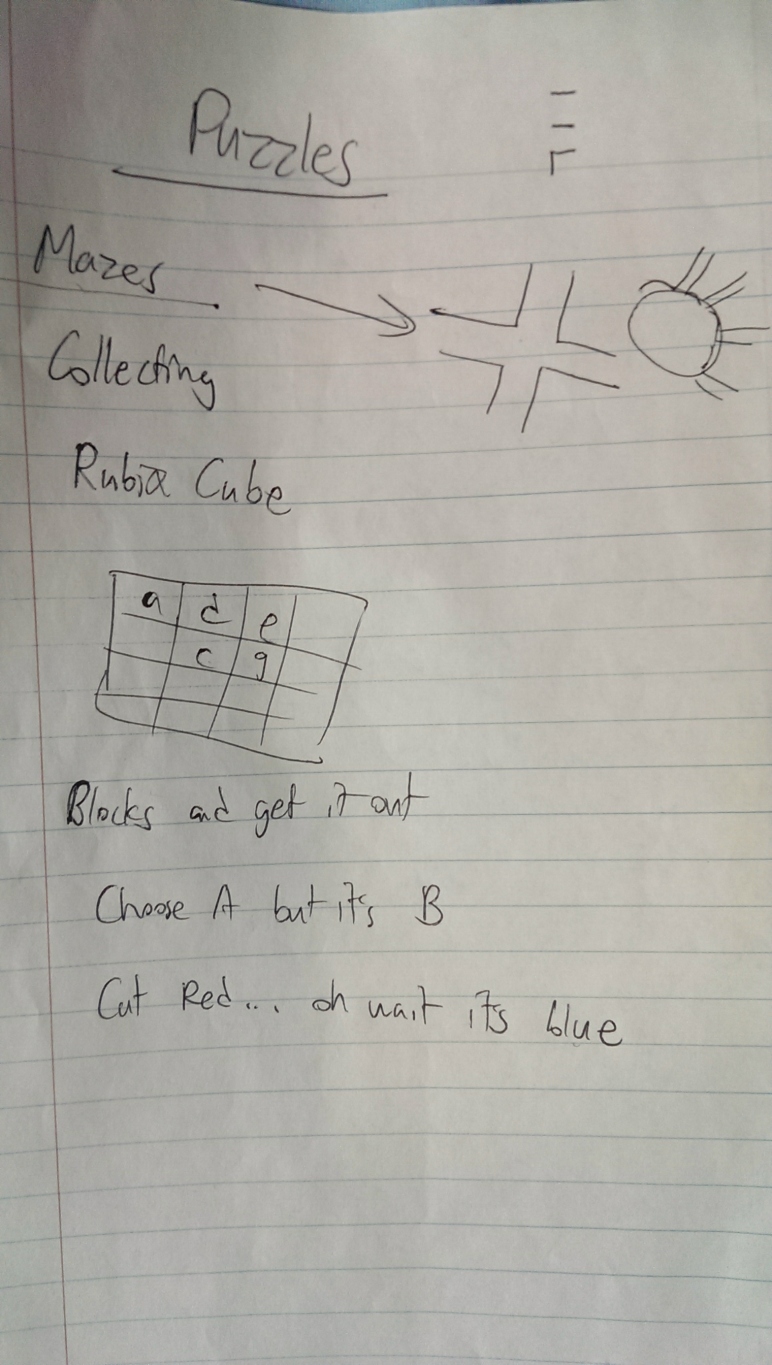 Puzzles
Mazes
Collecting
Cube
a d e
c g
Blocks and get it out
Choose A but it's B
Cut Red... oh wait it's blue